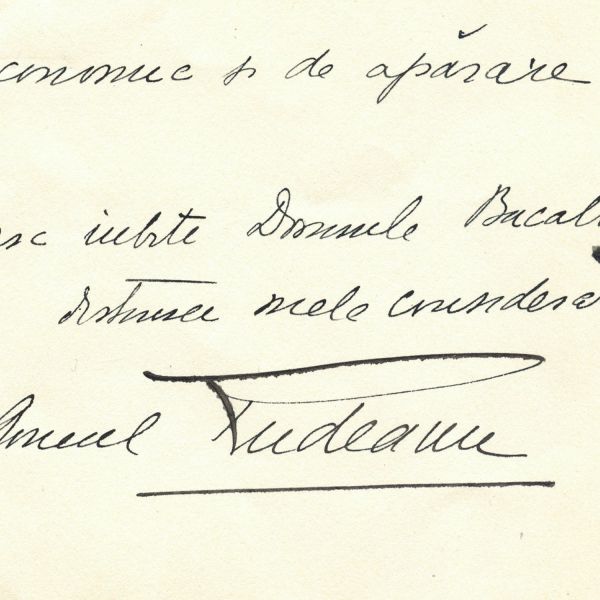 conomic și de apărare
esc iubite Domnule Bacalb
distinsei mele considera
General Rudeanu